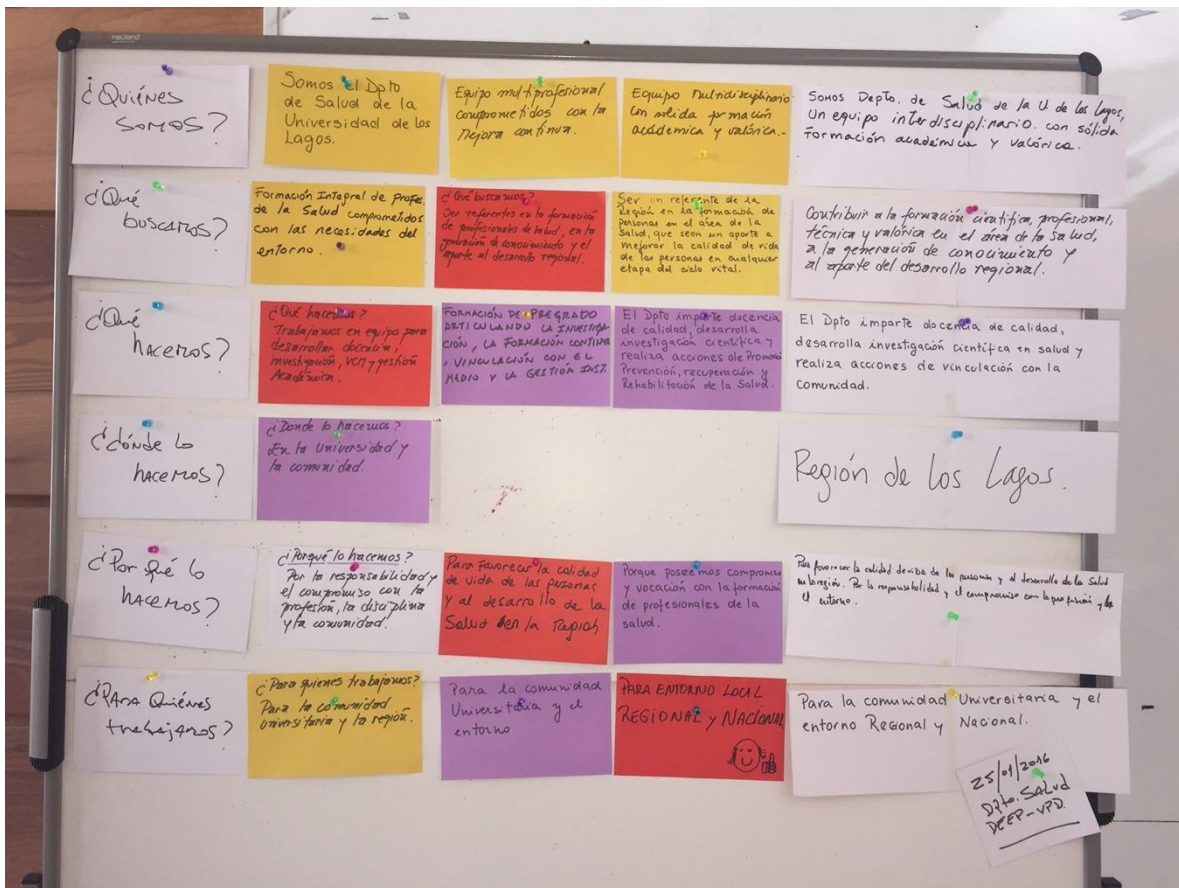 neuland
¿Quiénes
somos?
Somos el Dpto
de Salud de la
Universidad de los
Lagos.
Equipo multiprofesional
comprometidos con la
mejora continua.
Equipo Multidisciplinario
con sólida formación
académica y valórica.-
Somos Depto. de Salud de la U de los Lagos,
un equipo interdisciplinario con sólida
formación académica y valórica.
¿Qué
buscamos?
Formación Integral de Profes.
de la Salud comprometidos
con las necesidades del
entorno.
¿Qué buscamos?
Ser referentes en la formación
de profesionales de salud, en la
generación de conocimiento y el
aporte al desarrollo regional.
Ser un referente de la
Región en la formación de
personas en el área de la
Salud, que sean un aporte a
mejorar la calidad de vida
de las personas en cualquier
etapa del ciclo vital.
Contribuir a la formación científica, profesional,
técnica y valórica en el área de la Salud,
a la generación de conocimiento y
al aporte del desarrollo regional.
¿Qué
hacemos?
¿Qué hacemos?
Trabajamos en equipo para
desarrollar docencia,
investigación, VCM y gestión
Académica.
FORMACIÓN DE PREGRADO
ARTICULANDO LA INVESTIGA-
CIÓN, LA FORMACIÓN CONTINUA
, VINCULACIÓN CON EL
MEDIO Y LA GESTIÓN INST.
El Dpto imparte docencia
de calidad, desarrolla
investigación científica y
realiza acciones de Promoción
Prevención, recuperación y
Rehabilitación de la Salud.
El Dpto imparte docencia de calidad,
desarrolla investigación científca en salud y
realiza acciones de vinculación con la
comunidad.
¿dónde lo
hacemos?
¿Donde lo hacemos?
En la Universidad y
la comunidad.
Región de Los Lagos.
¿Por qué lo
hacemos?
¿Porqué lo hacemos?
Por la responsabilidad y
el compromiso con la
profesión, la disciplina
y la comunidad.
Para Favorecer la calidad
de vida de las personas
y al desarrollo de la
Salud en la Región
Porque poseemos compromiso
y vocación con la formación
de profesionales de la
salud.
Para favorecer la calidad de vida de las personas y al desarrollo de la Salud
en la región. Por la responsabilidad y el compromiso con la profesión y
el entorno.
¿Para Quiénes
trabajamos?
¿Para quienes trabajamos?
Para la comunidad
universitaria y la región.
Para la comunidad
Universitaria y el
entorno
PARA ENTORNO LOCAL
REGIONAL y NACIONAL
Para la comunidad Universitaria y el
entorno Regional y Nacional.
25/01/2016
Dpto. SALUD
DEEP-VPD.